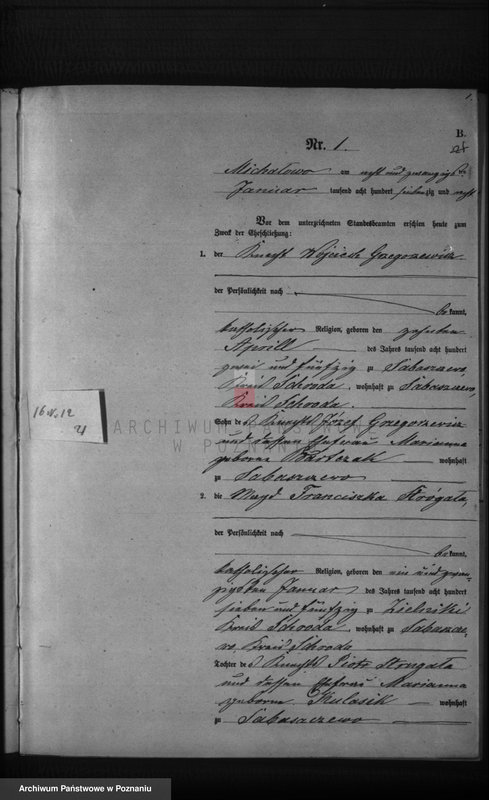 1.
B.
Nr. 1.
Michałowo am acht und zwanzigsten
Januar tausend acht hundert siebenzig und acht
Vor dem unterzeichneten Standesbeamten erschien heute zum
Zweck der Eheschließung:
1. der Knecht Wojciech Grzegorzewicz
der Persönlichkeit nach
bekannt,
katholischer Religion, geboren den zehnten
April des Jahres tausend acht hundert
zwei und fünfzig zu Sabaszewo,
Kreis Schroda, wohnhaft zu Sabaszewo,
Kreis Schroda.
Sohn des Knechts Józef Grzegorzewicz
und dessen Ehefrau Marianna
geborne wohnhaft
16 N. 12
ARCHIWUM
W POZNANIU
zu Sabaszewo
2. die Magd Franciszka Strógała,
der Persönlichkeit nach
bekannt,
katholischer Religion, geboren den ein und zwan-
zigsten Januar des Jahres tausend acht hundert
sieben und fünfzig zu
Kreis Schroda, wohnhaft zu Sabasze-
wo, Kreis Schroda
Tochter des Knechts Piotr Strogała
und dessen Ehefrau Marianna
geborne Kulasik wohnhaft
zu Sabaszczewo
Archiwum Państwowe w Poznaniu